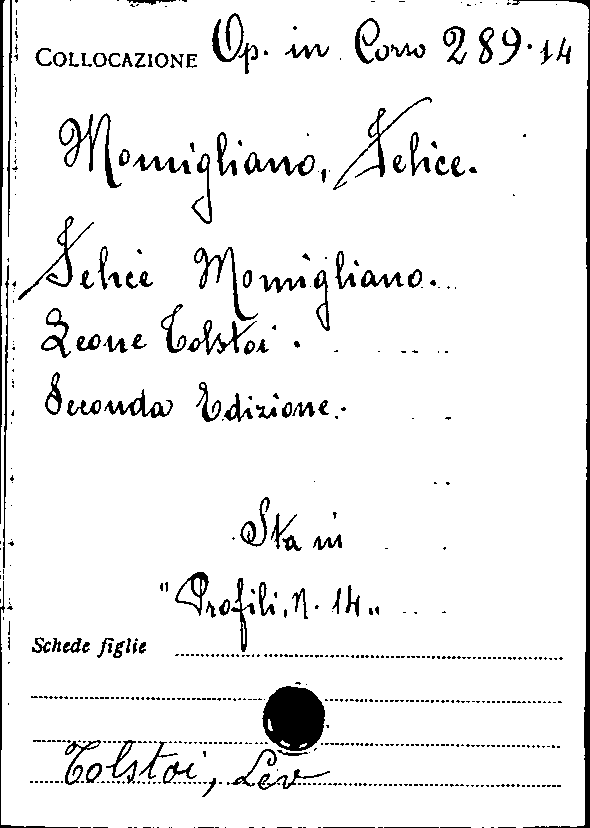 COLLOCAZIONE Op. in Corso 289.14
Momigliano, Felice.
Felice Momigliano.
Leone Tolstoi.
Seconda Edizione.
Sta in
"Profili, N. 14"
Schede figlie
Tolstoi, Lev